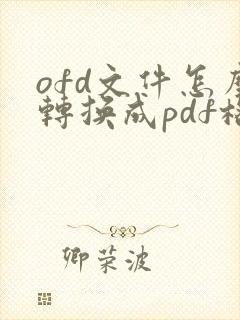 ofd文件怎
轉換成pdf
卿荣波